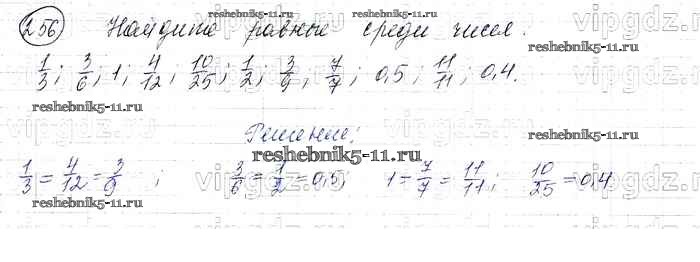 256 Найдите равные среди чисел:
1/3; 3/6; 1; 4/12; 10/25; 1/2; 3/9; 7/7; 0,5; 11/11; 0,4.
Решение:
1/3 = 4/12 = 3/9; 3/6 = 1/2 = 0,5; 1 = 7/7 = 11/11; 10/25 = 0,4
reshebnik5-11.ru
reshebnik5-11.ru
reshebnik5-11.ru
reshebnik5-11.ru
reshebnik5-11.ru
reshebnik5-11.ru
reshebnik5-11.ru
reshebnik5-11.ru
vipgdz.ru
vipgdz.ru
vipgdz.ru